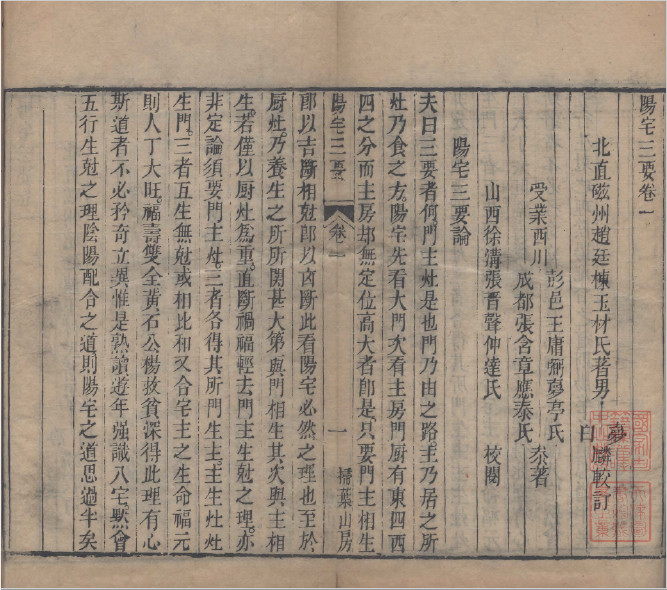 陽宅三要卷一
北直磁州趙廷棟玉材氏著男 夢麟 白 較訂
受業西川 彭邑王庸弼夢亭氏 成都張含章應泰氏 泰著
山西徐溝張晋聲仲達氏 校閱
陽宅三要論
夫曰三要者何門主灶是也門乃由之路主乃居之所
灶乃食之方陽宅先看大門次看主房門厨有東四西
四之分而主房却無定位高大者卽是只要門主相生
陽宅三要 卷一 一 掃葉山房
郎以吉斷相尅郎以凶斷此看陽宅必然之理也至於
厨灶乃養生之所所関甚大第與門相生其次與主相
生若僅以厨灶為重直斷禍福輕去門主生尅之理亦
非定論須要門主灶三者各得其所門生主主生灶灶
生門三者互生無尅或相比相又合宅主之生命福元
則人丁大旺福壽雙全黄石公楊救貧深得此理有心
斯道者不必矜奇立異惟是熟讀遊年強識八宅默會
五行生尅之理陰陽配合之道則陽宅之道思過半矣